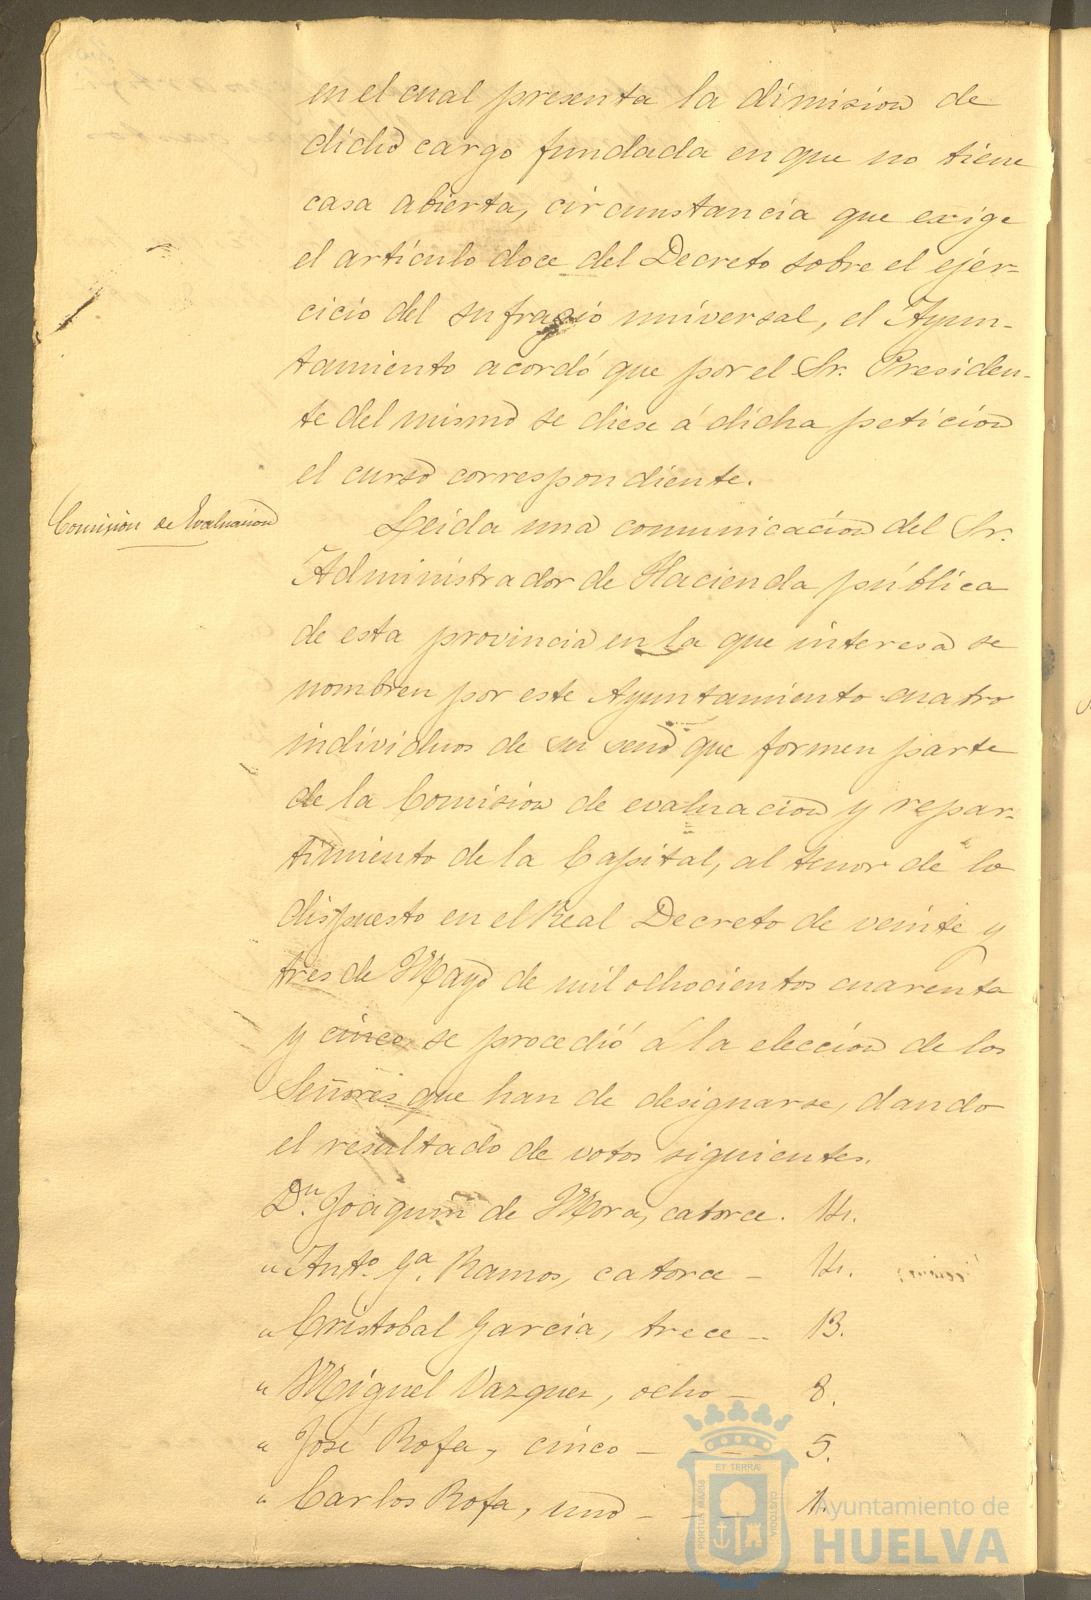 en el cual presenta la dimision de
dicho cargo fundada en que no tiene
casa abierta, circunstancia que exige
el artículo doce del Decreto sobre el ejer-
cicio del sufragio universal, el Ayun-
tamiento acordó que por el Sr. Presiden-
te del mismo se diese á dicha peticion
el curso correspondiente.
Comision de Evaluacion
Leida una comunicacion del Sr.
Administrador de Hacienda pública
de esta provincia en la que interesa se
nombren por este Ayuntamiento cuatro
individuos de su seno que formen parte
de la Comision de evaluacion y repar-
timiento de la Capital, al tenor de lo
dispuesto en el Real Decreto de veinte y
tres de Mayo de mil ochocientos cuarenta
y cinco, se procedió á la eleccion de los
Señores que han de designarse, dando
el resultado de votos siguientes.
Dn. Joaquin de Mora, catorce. 14.
" Anto. Ga. Ramos, catorce - 14.
" Cristobal Garcia, trece - 13.
" Miguel Vazquez, ocho - 8.
" José Rofa, cinco - 5.
" Carlos Rofa, uno - 1.
PORTUS MARIS ET TERRÆ CUSTODIA
Ayuntamiento de
HUELVA